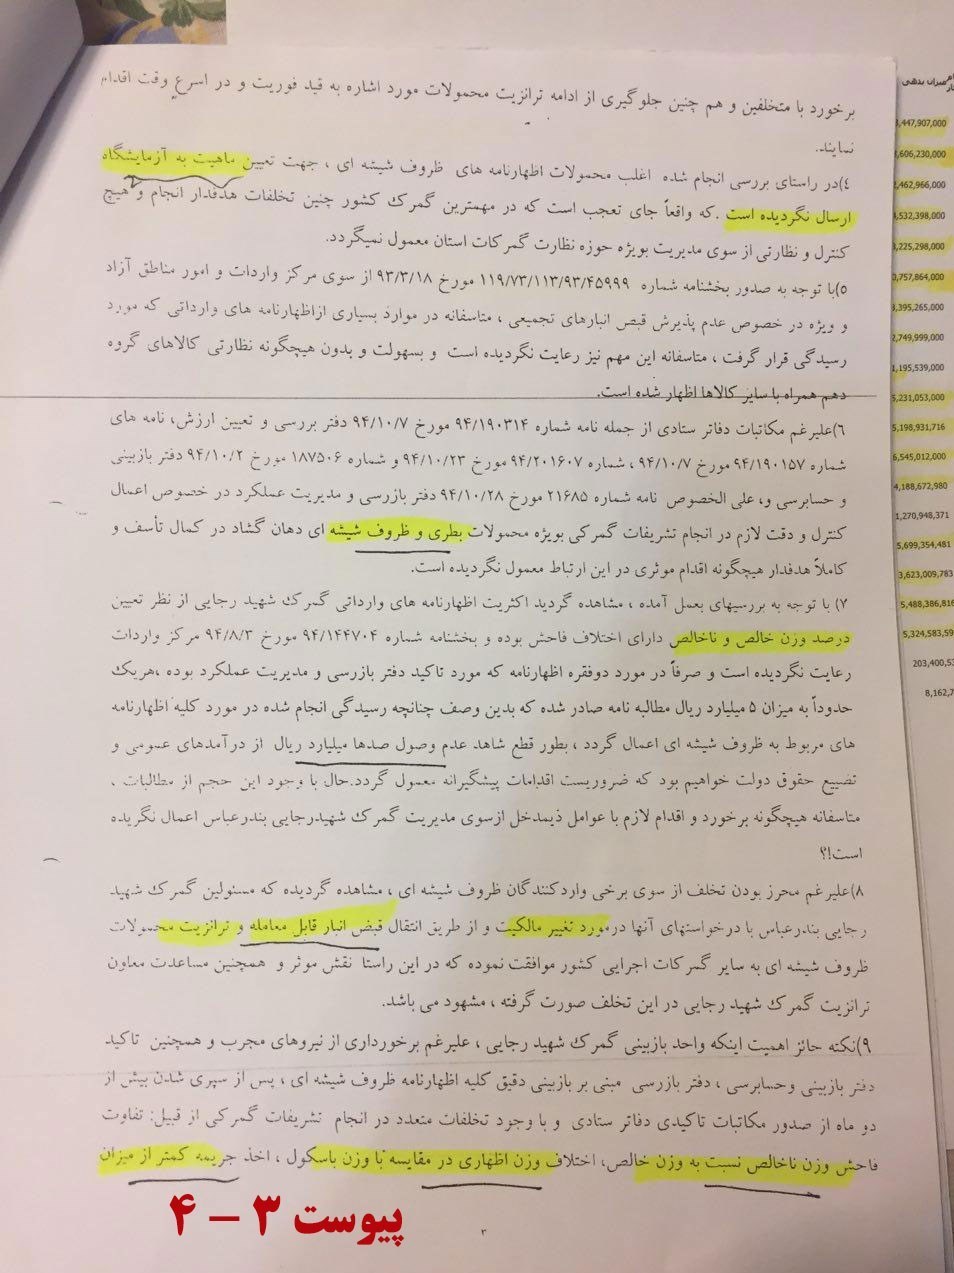 برخورد با متخلفین و هم چنین جلوگیری از ادامه ترانزیت محمولات مورد اشاره به قید فوریت و در اسرع وقت اقدام
نمایند.
۴)در راستای بررسی انجام شده اغلب محمولات اظهارنامه های ظروف شیشه ای ، جهت تعیین ماهیت به آزمایشگاه
ارسال نگردیده است .که واقعاً جای تعجب است که در مهمترین گمرک کشور چنین تخلفات هدفدار انجام و هیچ
کنترل و نظارتی از سوی مدیریت بویژه حوزه نظارت گمرکات استان معمول نمیگردد.
۵)با توجه به صدور بخشنامه شماره ۱۱۹/۷۳/۱۱۳/۹۳/۴۵۹۹۹ مورخ ۹۳/۳/۱۸ از سوی مرکز واردات و امور مناطق آزاد
و ویژه در خصوص عدم پذیرش قبض انبارهای تجمیعی ، متاسفانه در موارد بسیاری ازاظهارنامه های وارداتی که مورد
رسیدگی قرار گرفت ، متاسفانه این مهم نیز رعایت نگردیده است و بسهولت و بدون هیچگونه نظارتی کالاهای گروه
دهم همراه با سایر کالاها اظهار شده است.
۶)علیرغم مکاتبات دفاتر ستادی از جمله نامه شماره ۹۴/۱۹۰۳۱۴ مورخ ۹۴/۱۰/۷ دفتر بررسی و تعیین ارزش، نامه های
شماره ۹۴/۱۹۰۱۵۷ مورخ ۹۴/۱۰/۷ ، شماره ۹۴/۲۰۱۶۰۷ مورخ ۹۴/۱۰/۲۳ و شماره ۱۸۷۵۰۶ مورخ ۹۴/۱۰/۲ دفتر بازبینی
و حسابرسی و، علی الخصوص نامه شماره ۲۱۶۸۵ مورخ ۹۴/۱۰/۲۸ دفتر بازرسی و مدیریت عملکرد در خصوص اعمال
کنترل و دقت لازم در انجام تشریفات گمرکی بویژه محمولات بطری و ظروف شیشه ای دهان گشاد در کمال تأسف و
کاملاً هدفدار هیچگونه اقدام موثری در این ارتباط معمول نگردیده است.
۷) با توجه به بررسیهای بعمل آمده ، مشاهده گردید اکثریت اظهارنامه های وارداتی گمرک شهید رجایی از نظر تعیین
درصد وزن خالص و ناخالص دارای اختلاف فاحش بوده و بخشنامه شماره ۹۴/۱۴۴۷۰۴ مورخ ۹۴/۸/۳ مرکز واردات
رعایت نگردیده است و صرفاً در مورد دوفقره اظهارنامه که مورد تاکید دفتر بازرسی و مدیریت عملکرد بوده ،هریک
حدوداً به میزان ۵ میلیارد ریال مطالبه نامه صادر شده که بدین وصف چنانچه رسیدگی انجام شده در مورد کلیه اظهارنامه
های مربوط به ظروف شیشه ای اعمال گردد ، بطور قطع شاهد عدم وصول صدها میلیارد ریال از درآمدهای عمومی و
تضییع حقوق دولت خواهیم بود که ضروریست اقدامات پیشگیرانه معمول گردد.حال با وجود این حجم از مطالبات ،
متاسفانه هیچگونه برخورد و اقدام لازم با عوامل ذیمدخل ازسوی مدیریت گمرک شهیدرجایی بندرعباس اعمال نگریده
است!؟
۸)علیرغم محرز بودن تخلف از سوی برخی واردکنندگان ظروف شیشه ای ، مشاهده گردیده که مسئولین گمرک شهید
رجایی بندرعباس با درخواستهای آنها درمورد تغییر مالکیت و از طریق انتقال قبض انبار قابل معامله و ترانزیت محمولات
ظروف شیشه ای به سایر گمرکات اجرایی کشور موافقت نموده که در این راستا نقش موثر و همچنین مساعدت معاون
ترانزیت گمرک شهید رجایی در این تخلف صورت گرفته ، مشهود می باشد.
۹)نکته حائز اهمیت اینکه واحد بازبینی گمرک شهید رجایی ، علیرغم برخورداری از نیروهای مجرب و همچنین تاکید
دفتر بازبینی وحسابرسی ، دفتر بازرسی مبنی بر بازبینی دقیق کلیه اظهارنامه ظروف شیشه ای ، پس از سپری شدن بیش از
دو ماه از صدور مکاتبات تاکیدی دفاتر ستادی و با وجود تخلفات متعدد در انجام تشریفات گمرکی از قبیل: تفاوت
فاحش وزن ناخالص نسبت به وزن خالص، اختلاف وزن اظهاری در مقایسه با وزن باسکول ، اخذ جریمه کمتر از میزان
۳
پیوست ۳ – ۴
میزان بدهی
,447,907,000
,606,230,000
,462,966,000
,532,398,000
,225,298,000
,757,864,000
,395,265,000
,749,999,000
,195,539,000
,231,053,000
,198,931,716
,545,012,000
,188,672,980
,270,948,371
5,699,354,481
3,623,009,783
5,488,386,816
5,324,583,59
203,400,53
8,162,7